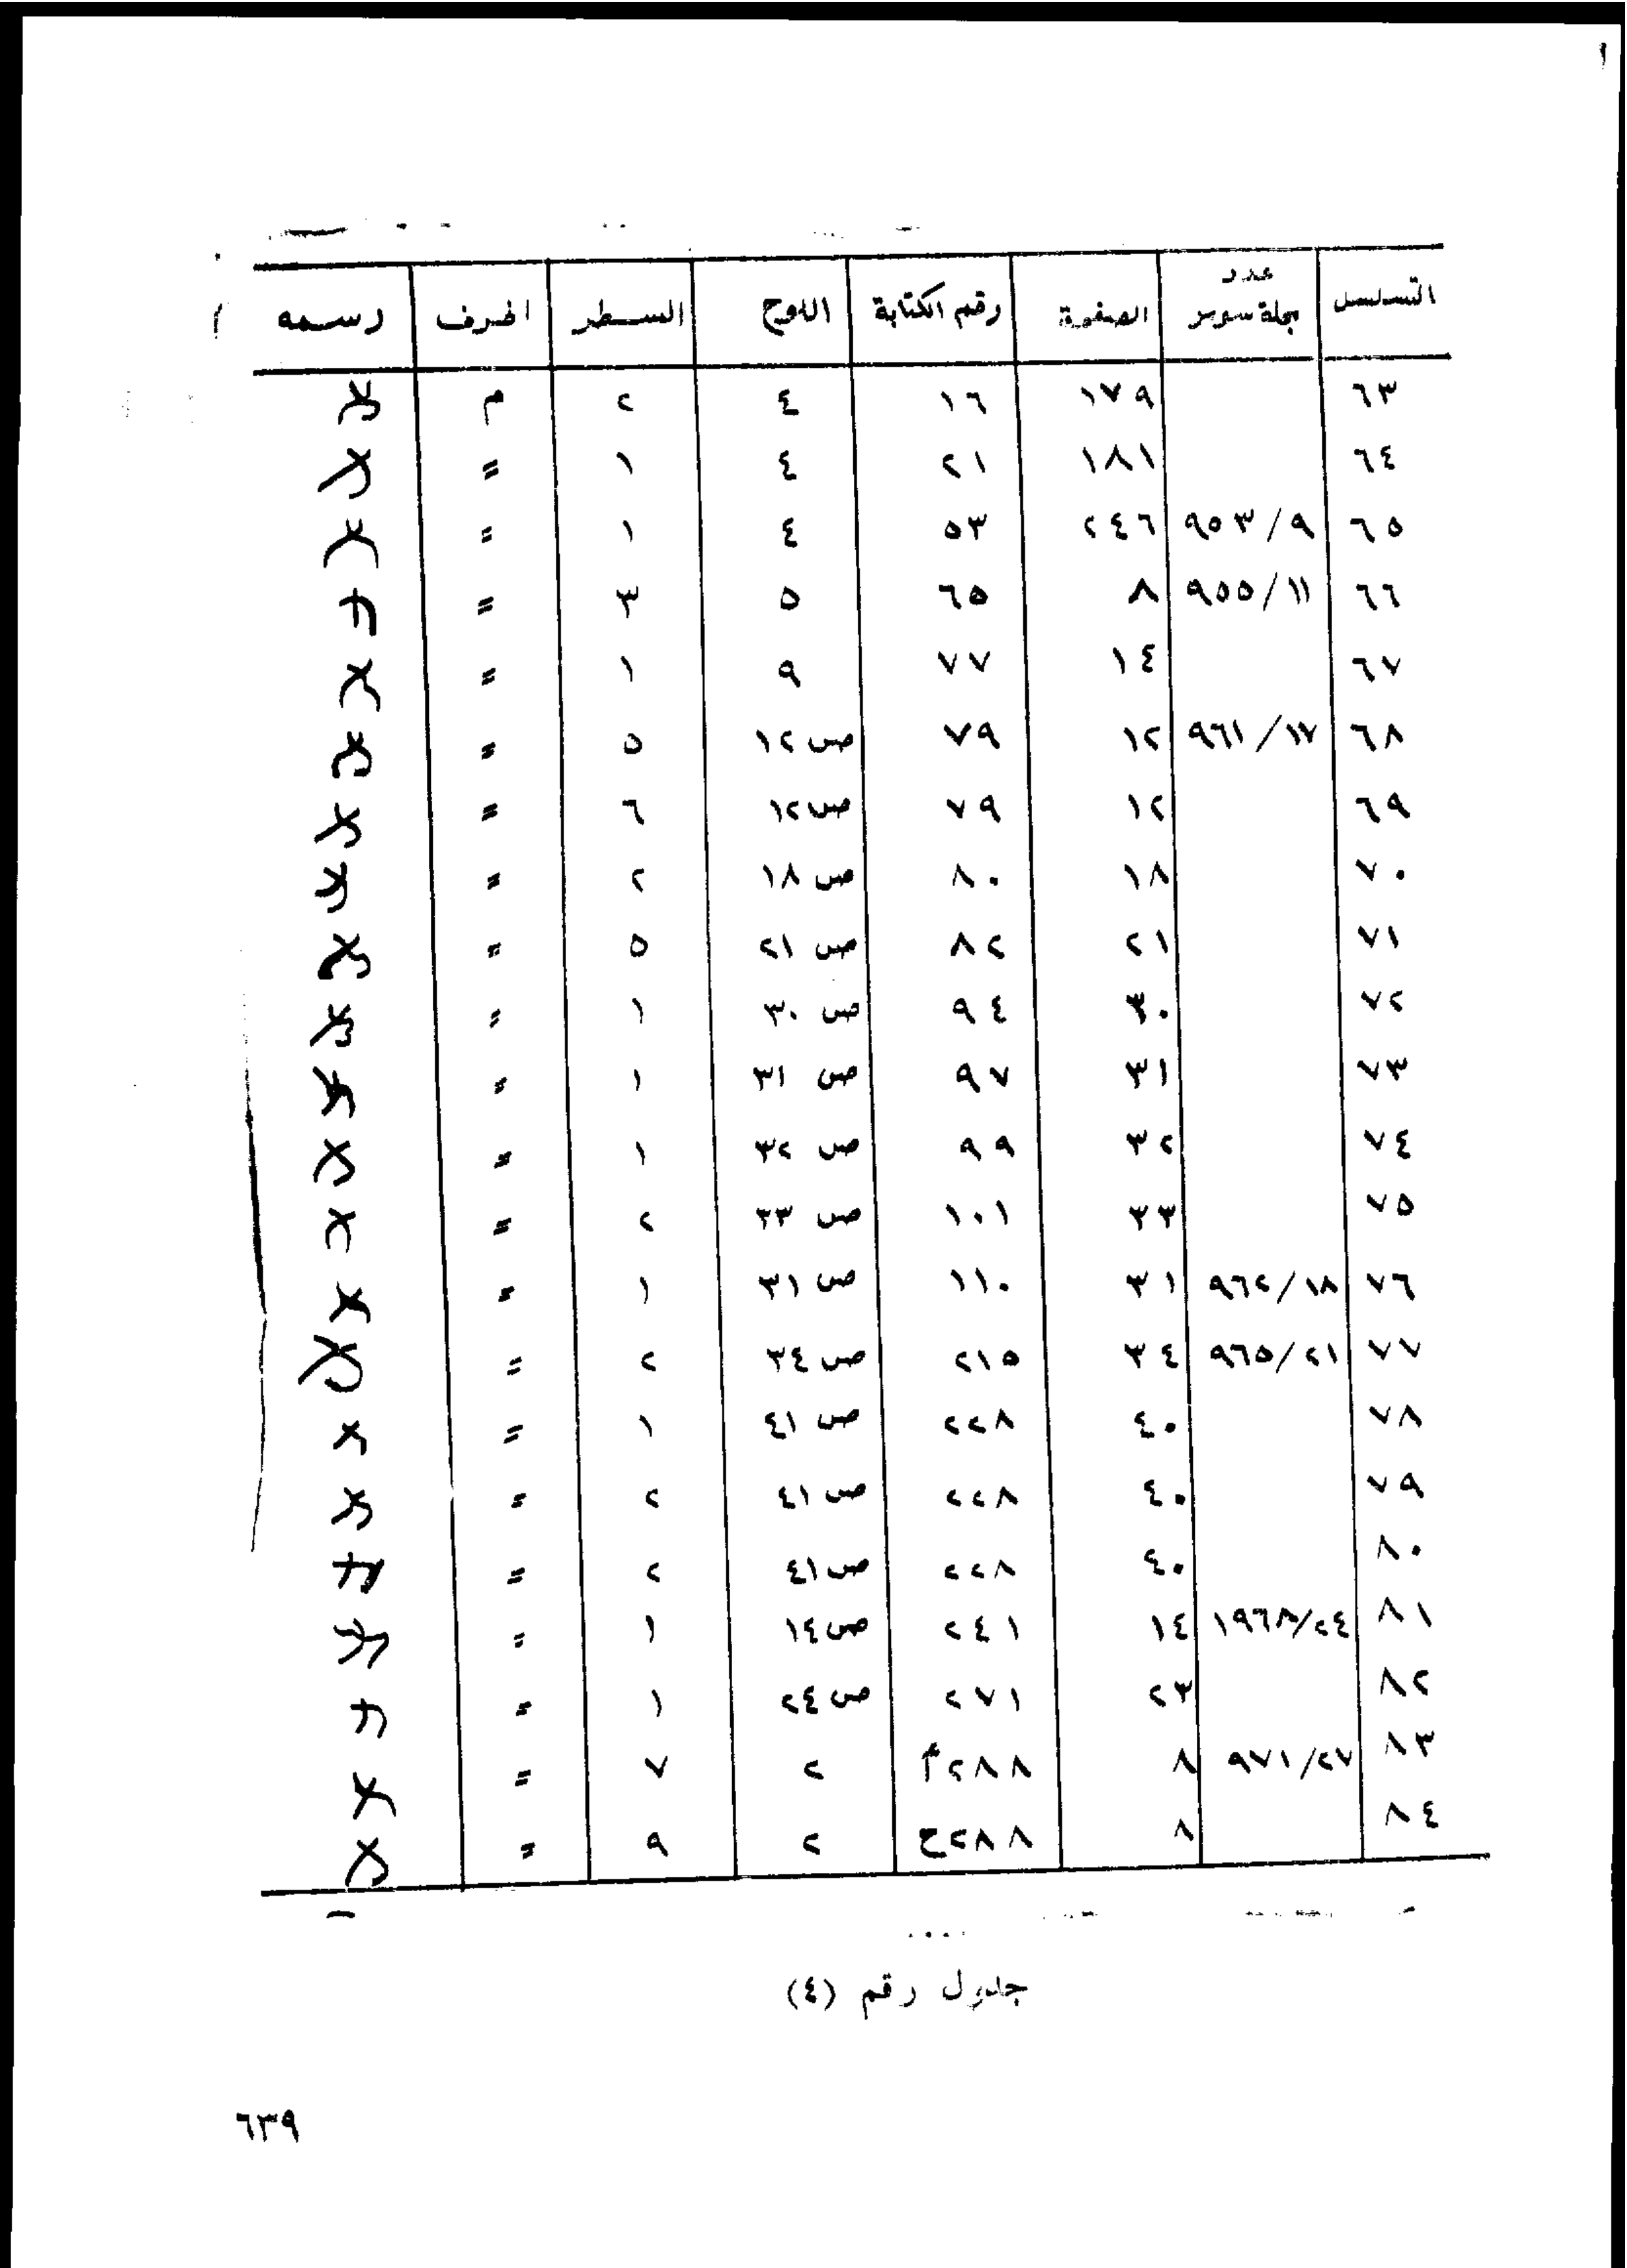 التسلسل عدد مجلة سومر الصفحة رقم الكتابة اللوح السطر الحرف رسمه
٦٣ ١٧٩ ١٦ ٤ ٢ م
٦٤ ١٨١ ٢١ ٤ ١ =
٦٥ ٩٥٣/٩ ٢٤٦ ٥٣ ٤ ١ =
٦٦ ٩٥٥/١١ ٨ ٦٥ ٥ ٣ =
٦٧ ١٤ ٧٧ ٩ ١ =
٦٨ ٩٦١/١٧ ١٢ ٧٩ ص ١٢ ٥ =
٦٩ ١٢ ٧٩ ص ١٢ ٦ =
٧٠ ١٨ ٨٠ ص ١٨ ٢ =
٧١ ٢١ ٨٢ ص ٢١ ٥ =
٧٢ ٣٠ ٩٤ ص ٣٠ ١ =
٧٣ ٣١ ٩٧ ص ٣١ ١ =
٧٤ ٣٢ ٩٩ ص ٣٢ ١ =
٧٥ ٣٣ ١٠١ ص ٣٣ ٢ =
٧٦ ٩٦٢/١٨ ٣١ ١١٠ ص ٣١ ١ =
٧٧ ٩٦٥/٢١ ٣٤ ٢١٥ ص ٣٤ ٢ =
٧٨ ٤٠ ٢٢٨ ص ٤١ ١ =
٧٩ ٤٠ ٢٢٨ ص ٤١ ٢ =
٨٠ ٤٠ ٢٢٨ ص ٤١ ٢ =
٨١ ١٩٦٨/٢٤ ١٤ ٢٤١ ص ١٤ ١ =
٨٢ ٢٣ ٢٧١ ص ٢٤ ١ =
٨٣ ٩٧١/٢٧ ٨ ٢٨٨أ ٢ ٧ =
٨٤ ٨ ٢٨٨ح ٢ ٩ =
جدول رقم (٤)
٦٣٩